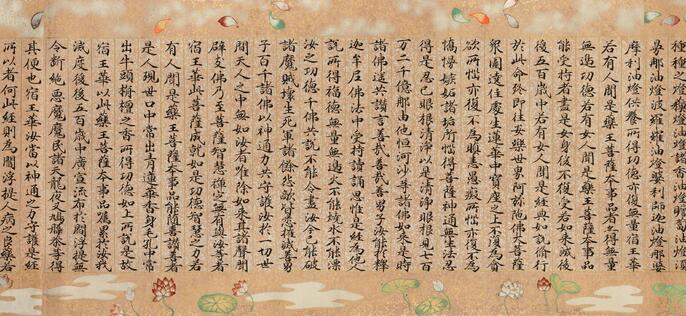 種種之燈蘇燈油燈諸香油燈瞻蔔油燈須
曼那油燈波羅羅油燈婆利師迦油燈那婆
摩利油燈供養所得功德亦復無量宿王華
若有人聞是藥王菩薩本事品者亦得無量
無邊功德若有女人聞是藥王菩薩本事品
能受持者盡是女身後不復受若如來滅後
後五百歲中若有女人聞是經典如說修行
於此命終即往安樂世界阿彌陀佛大菩薩
衆圍遶住處生蓮華中寶座之上不復為貪
欲所惱亦復不為瞋恚愚癡所惱亦復不為
憍慢嫉妬諸垢所惱得菩薩神通無生法忍
得是忍已眼根清淨以是清淨眼根見七百
万二千億那由他恒河沙等諸佛如來是時
諸佛遙共讚言善哉善哉善男子汝能於釋
迦牟尼佛法中受持讀誦思惟是經為他人
說所得福德無量無邊火不能燒水不能漂
汝之功德千佛共說不能令盡汝今已能破
諸魔賊壞生死軍諸餘怨敵皆悉摧滅善男
子百千諸佛以神通力共守護汝於一切世
間天人之中無如汝者唯除如來其諸聲聞
辟支佛乃至菩薩智慧禪定無有與汝等者
宿王華此菩薩成就如是功德智慧之力若
有人聞是藥王菩薩本事品能隨喜讚善者
是人現世口中常出青蓮華香身毛孔中常
出牛頭栴檀之香所得功德如上所說是故
宿王華以此藥王菩薩本事品囑累於汝我
滅度後後五百歲中廣宣流布於閻浮提無
令斷絕惡魔魔民諸天龍夜叉鳩槃荼等得
其便也宿王華汝當以神通之力守護是經
所以者何此經則為閻浮提人病之良藥若